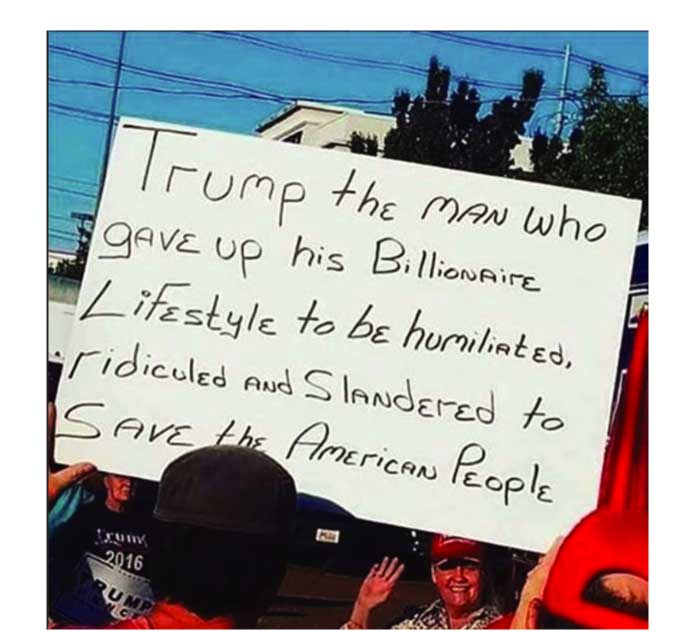 Trump the MAN who
gAVE up his BillionAire
LifEstylE to bE humiliatEd,
ridiculed AND SlANDErED to
SAVE thE AmEricAN PEoplE
Trump
2016
TRUMP